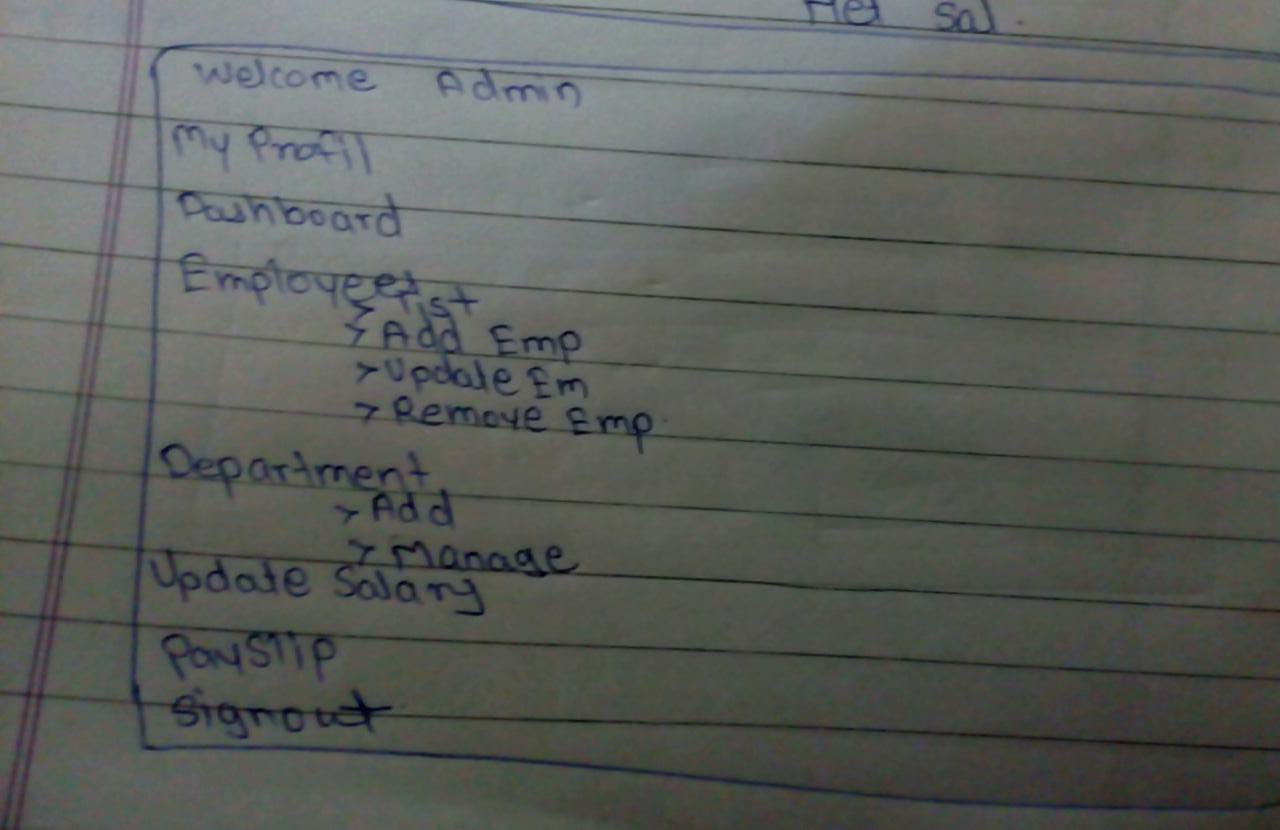 Sal.
Welcome Admin
My Profil
Dashboard
Employee List
> Add Emp
> Update Em
> Remove Emp.
Department
> Add
> Manage
Update Salary
PaySlip
Signout